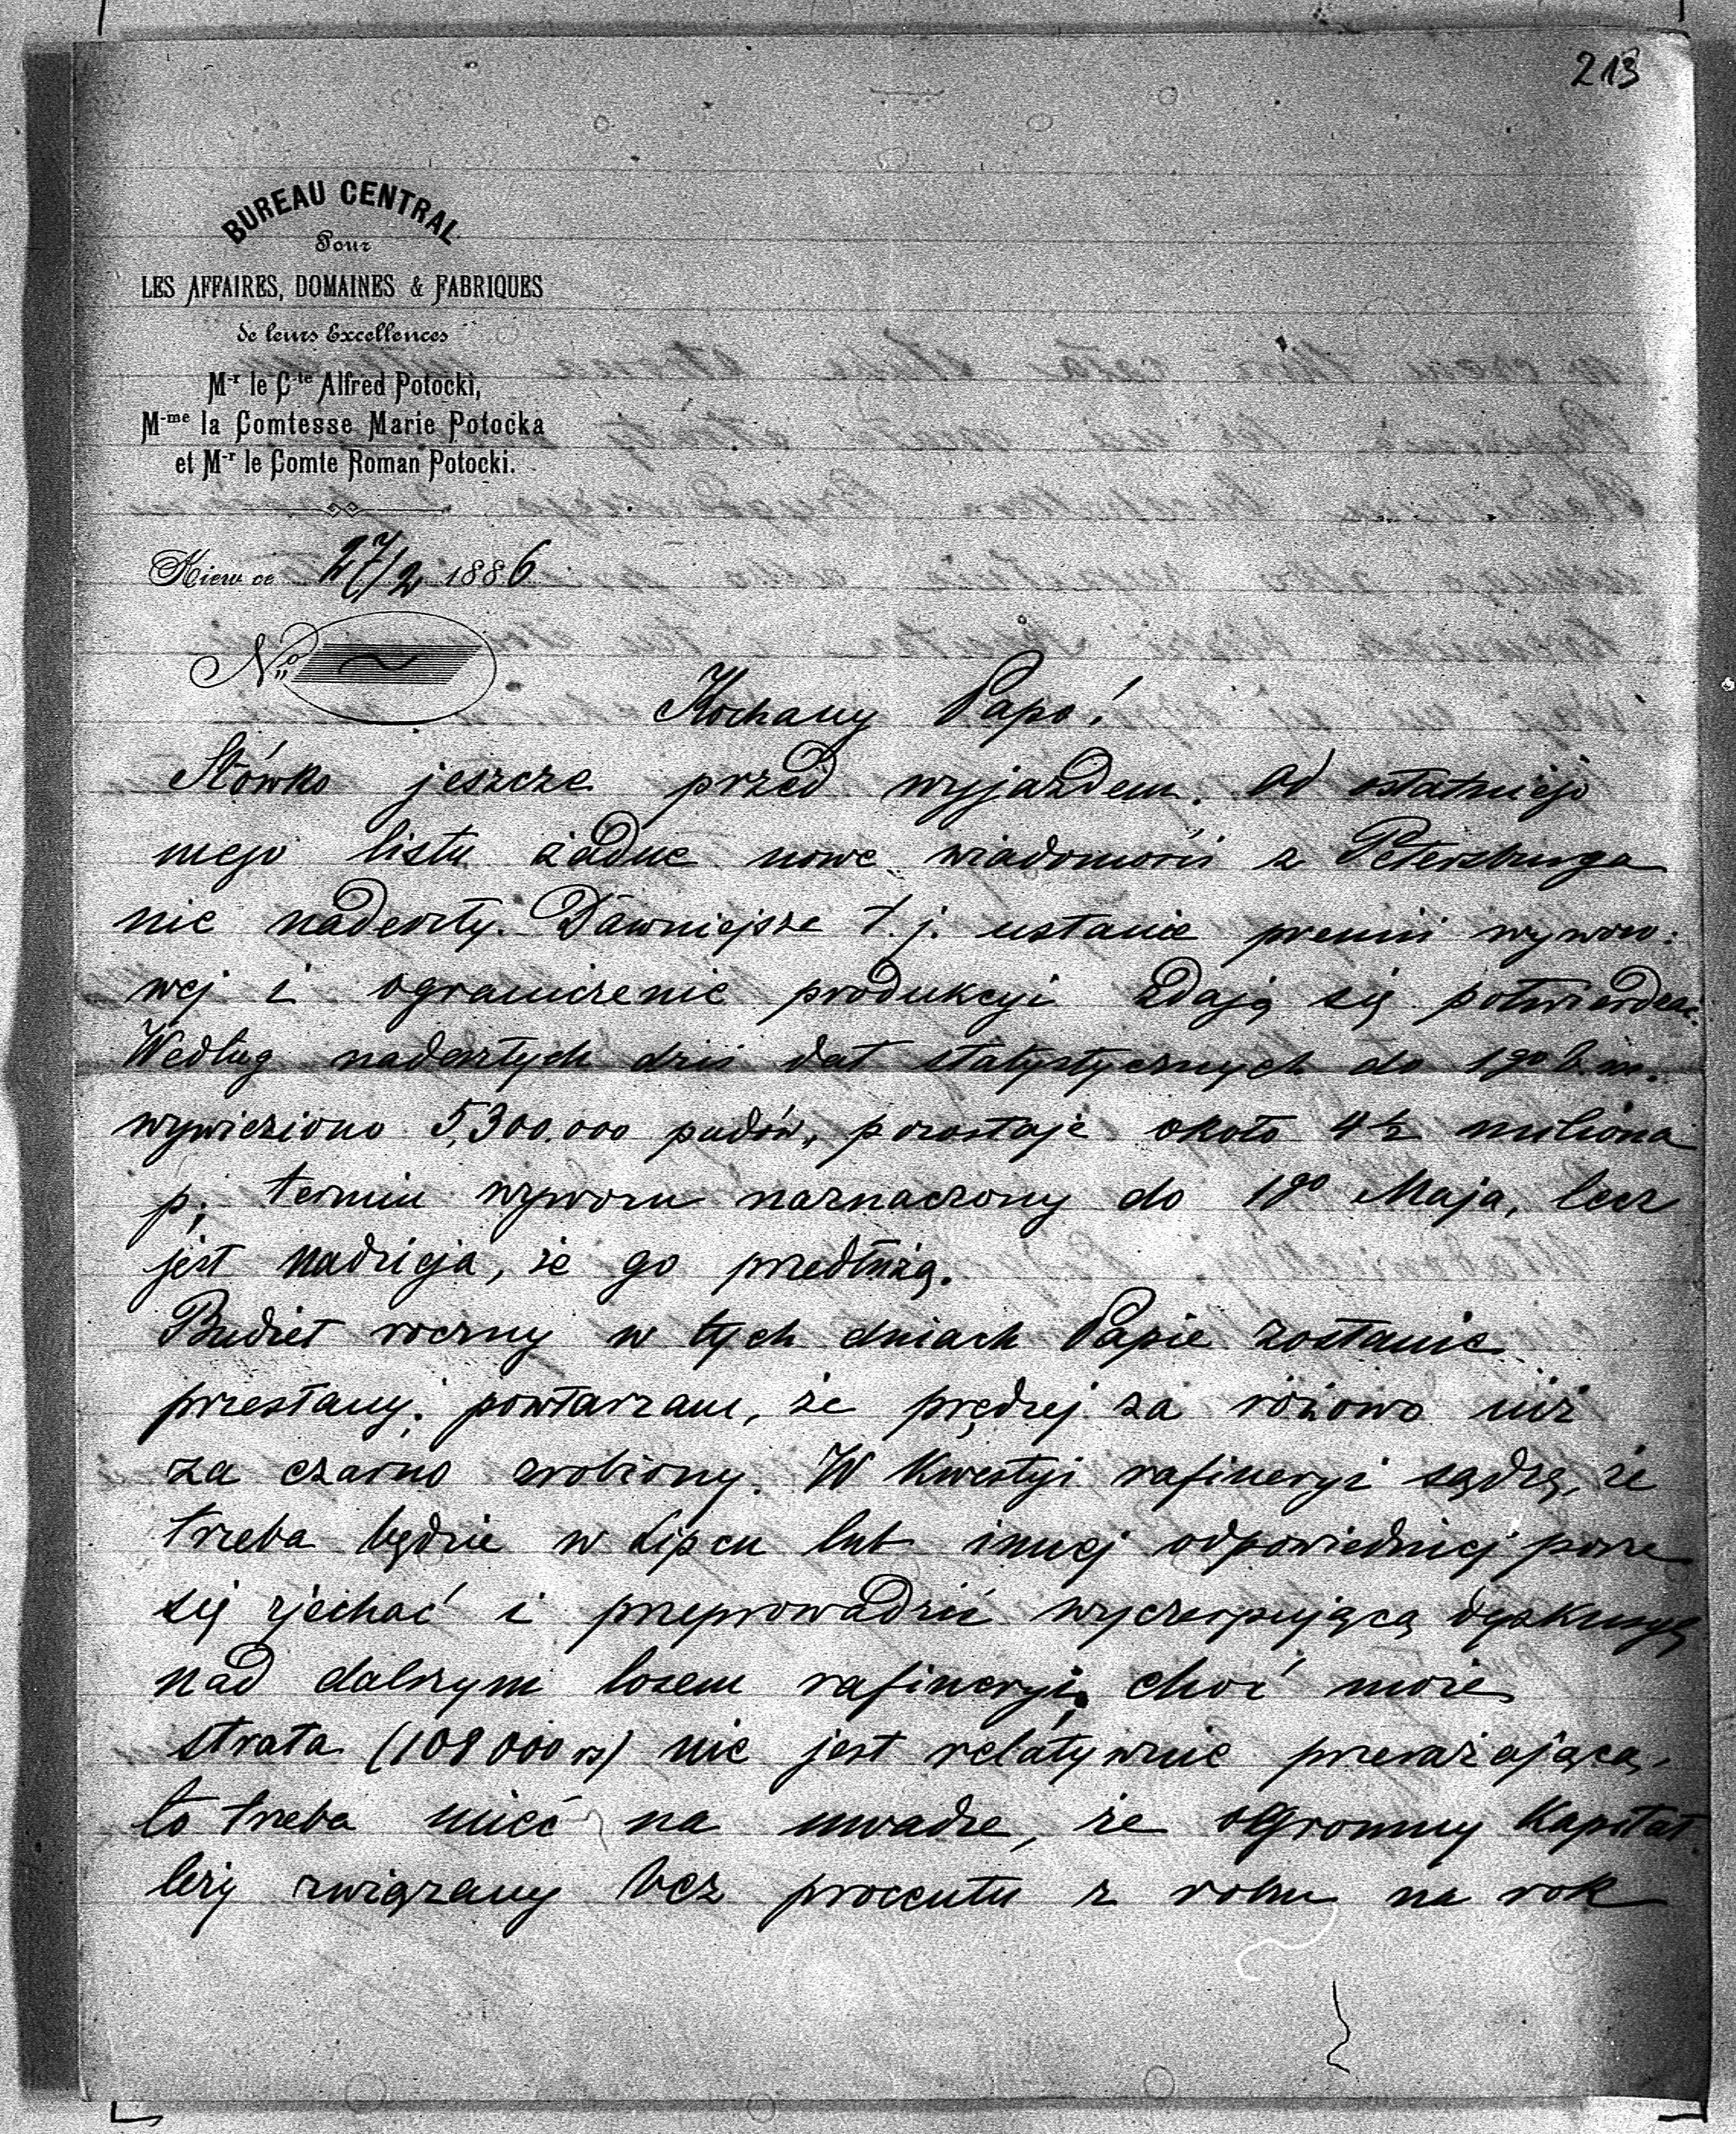 213
BUREAU CENTRAL
Pour
LES AFFAIRES, DOMAINES & FABRIQUES
de leurs Excellences
M-r le C-te Alfred Potocki,
M-me la Comtesse Marie Potocka
et M-r le Comte Roman Potocki.
Kiew ce 27/2 1886
No
Kochany Papo!
Słówko jeszcze przed wyjazdem. Od ostatniego
mego listu żadne nowe wiadomości z Petersburga
nie nadeszły. Dawniejsze t.j. ustanie premii wywozo:
wej i ograniczenie produkcyi zdają się potwierdzać.
Według nadeszłych dziś dat statystycznych do 1go b.m.
wywieziono 5,300.000 pudów, pozostaje około 4½ miliona
p; termin wywozu naznaczony do 1go Maja, lecz
jest nadzieja, że go przedłużą.
Budżet roczny w tych dniach Papie zostanie
przesłany; powtarzam, że prędzej za różowo niż
za czarno zrobiony. W kwestyi rafineryi sądzę, że
trzeba będzie w Lipcu lub innej odpowiedniej porze
się zjechać i przeprowadzić wyczerpującą dyskusyą
nad dalszym losem rafineryi, choć może
strata (108000 rs) nie jest relatywnie przerażającą,
to trzeba mieć na uwadze, że ogromny kapitał
leży związany bez procentu z roku na rok